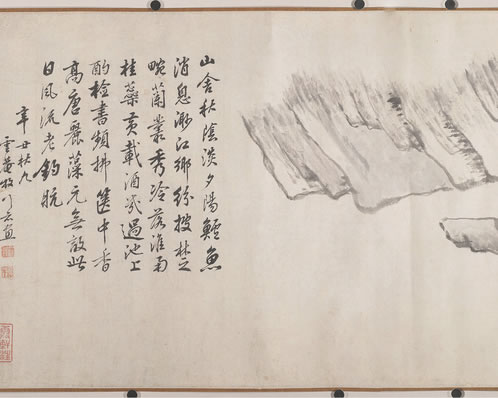 山舍秋陰淡夕陽鱸魚
消息渺江鄉紛披楚
畹蘭叢秀冷落淮南
桂蘂黃載酒過池上
酌檢書頻拂篋中香
高唐麗藻元無敵此
日風流老釣航
辛丑秋九
雲